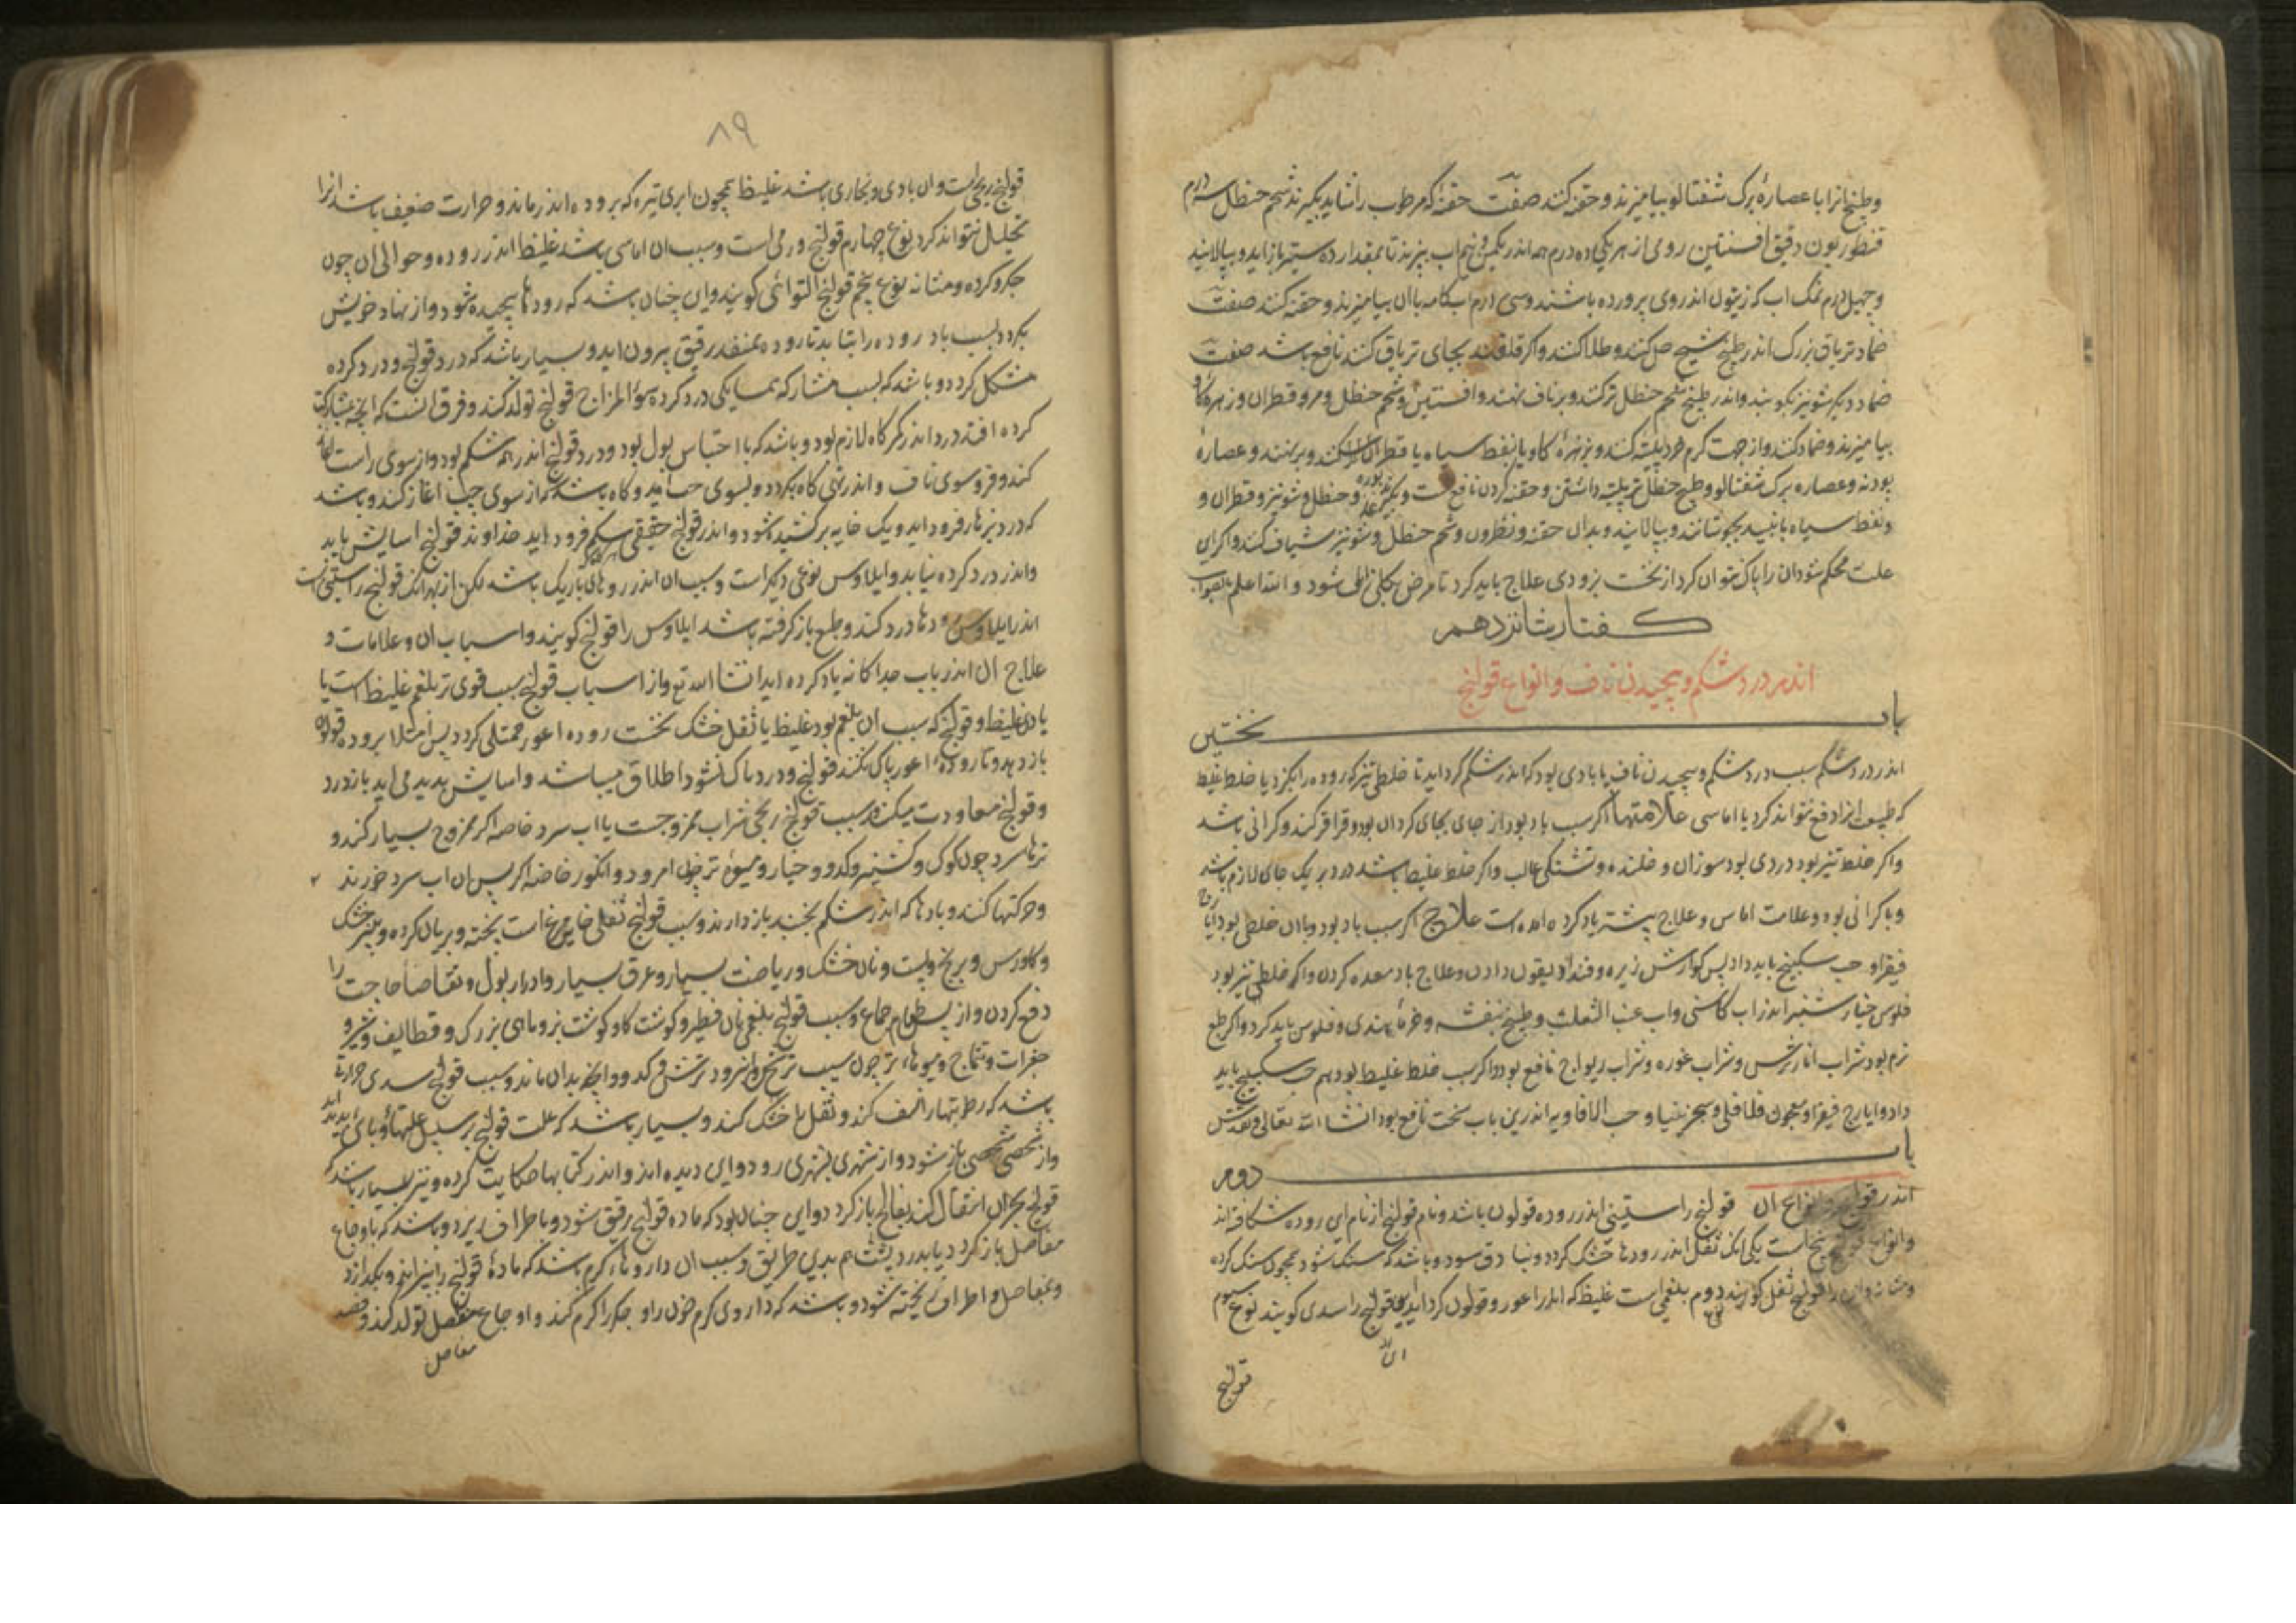 وطبیخ انرا با عصارهٔ برک شفتالو بیامیزند و حقنه کنند صفت حقنه که مرطوب را شاید بکیرند شحم حنظل سه درم
قنطوریون دقیق افسنتین رومی از هر یکی ده درم همه اندر یکمن و نیم اب بپزند تا بمقدار ده ستیر باز اید و بپالایند
و چهل درم نمک اب که زیتون اندر وی پرورده باشند و سی درم ابکامه با ان بیامیزند و حقنه کنند صفت
ضماد تریاق بزرک اندر طبیخ شیح حل کنند و طلا کنند و اکر قلوند بجای تریاق کنند نافع باشد صفت
ضماد دیکر شونیز بکوبند و اندر طبیخ شحم حنظل تر کنند و بر ناف نهند و افسنتین و شحم حنظل و مر و قطران و زهره کاو
بیامیزند و ضماد کنند و از جهت کرم خرد پلیته کنند و بزهرهٔ کاو یا بنفط سیاه یا قطران تر کنند و برنهند و عصاره
پودنه و عصاره برک شفتالو و طبیخ حنظل تر پلیته داشتن و حقنه کردن نافع است و بکیرند بوره و حنظل و شونیز و قطران و
و نفط سیاه بجوشانند و بپالایند و بدان حقنه و نطرون و شحم حنظل و شونیز شیاف کنند و اکر این
علت محکم شود ان را پاک نتوان کرد از نخست بزودی علاج باید کرد تا مرض بکلی زایل شود و الله اعلم بالصواب
کفتار شانزدهم
اندر درد شکم و پیچیدن ناف و انواع قولنج
باب نخستین
اندر درد شکم سبب درد شکم و پیچیدن ناف یا بادی بود که اندر شکم کرد اید تا خلطی تیز که روده را بکزد یا خلط غلیظ
که طبیعت انرا دفع نتواند کرد یا اماسی علامتها اکر سبب باد بود از جای بجای کردان بود و قراقر کند و کرانی باشد
و اکر خلط تیز بود دردی بود سوزان و خلنده و تشنکی غالب و اکر خلط غلیظ باشد درد بر یک جای لازم باشد
و با کرانی بود و علامت اماس و علاج پیشتر یاد کرده امده است علاج اکر سبب باد بود و با ان خلطی بود ایارج
فیقرا و حب سکبینج باید داد پس کوارش زیره و فندادیقون دادن و علاج باد معده کردن و اکر خلطی تیز بود
فلوس خیارشنبر اندر اب کاسنی و اب عنب الثعلب و طبیخ بنفشه و خرمای هندی و فلوس باید کرد و اکر طبع
نرم بود شراب انار ترش و شراب غوره و شراب ریواج نافع بود و اکر سبب خلط غلیظ بود هم حب سکبینج باید
داد و ایارج فیقرا و معجون فلافلی و سجزینیا و حب الافاویه اندرین باب سخت نافع بود انشا الله تعالی و تقدس
باب دوم
اندر قولنج و انواع ان قولنج راستینی اندر روده قولون باشد و نام قولنج از نام این روده شکافته اند
و انواع قولنج پنج است یکی انک ثفل اندر رودها خشک کردد و بنادق شود و باشد که سنک شود همچون سنک کرده
و مثانه و این را قولنج ثفل کویند دوم بلغمی است غلیظ که اندر اعور و قولون کرد اید و این قولنج را سدی کویند نوع سوم
قولنج
۸۹
قولنج ریحی است و ان بادی و بخاری باشد غلیظ همچون ابری تیره که بر روده اندر ماند و حرارت ضعیف باشد انرا
تحلیل نتواند کرد نوع چهارم قولنج ورمی است و سبب ان اماسی باشد غلیظ اندر روده و حوالی ان چون
جکر و کرده و مثانه نوع پنجم قولنج التوائی کویند و ان چنان باشد که رودها پیچیده شود و از نهاد خویش
بکردد بسبب باد روده را بتابد تا روده بمنفذ رقیق بیرون اید و بسیار باشد که درد قولنج و درد کرده
مشکل کردد و باشد که بسبب مشارکه همسایکی درد کرده سوء المزاج قولنج تولد کند و فرق انست که انچه بمشارکت
کرده افتد درد اندر کمرکاه لازم بود و باشد که با احتباس بول بود و درد قولنج اندر همه شکم بود و از سوی راست اغاز
کند و فرو سوی ناف و اندر تهی کاه بکردد و بسوی چپ اید و کاه باشد که از سوی چپ اغاز کند و باشد
که درد بزهار فرود اید و یک خایه برکشیده شود و اندر قولنج حقیقی شکم فرود اید خداوند قولنج اسایش یابد
و اندر درد کرده نیابد و ایلاوس نوعی دیکر است و سبب ان اندر رودهای باریک باشد لکن از بهر انک قولنج راستینی است
اندر ایلاوس رودها درد کند و طبع باز کرفته باشد ایلاوس را قولنج کویند و اسباب ان و علامات و
علاج ان اندر باب جداکانه یاد کرده اید انشا الله تع و از اسباب قولنج سبب قوی تر بلغم غلیظ است یا
بادی غلیظ و قولنج که سبب ان بلغم بود غلیظ یا ثفل خشک نخست روده اعور ممتلی کردد پس امتلا بروده قولون
باز دهد و تا رودهٔ اعور پاک نکنند قولنج و درد پاک نشود اطلاق میباشد و اسایش پدید می اید باز درد
و قولنج معاودت میکند و سبب قولنج ریحی شراب ممزوجست یا اب سرد خاصه اکر ممزوج بسیار کنند و
ترهاء سرد چون کوک و کشنیز و کدو و خیار و میوهٔ تر چون امرود و انکور خاصه اکر پس ان اب سرد خورند
و حرکتها کنند و بادها که اندر شکم بجنبد باز دارند و سبب قولنج ثفلی خایهٔ مرغ است پخته و بریان کرده و پنیر خشک
و کاورس و برنج و پست و نان خشک و ریاضت بسیار و عرق بسیار و ادرار بول و تقاضاء حاجت را
دفع کردن و از پس طعام جماع و سبب قولنج بلغمی نان فطیر و کوشت کاو و کوشت بز و ماهی بزرک و قطایف و شیر و
جغرات و تتماج و میوهاء تر چون سیب ترنج و امرود ترش و کدو و انچه بدان ماند و سبب قولنج سدی حرارتی
باشد که رطوبتها را نشف کند و ثفل را خشک کند و بسیار باشد که علت قولنج بر سبیل علتهاء وبای پدید اید
و از شخصی بشخصی باز شود و از شهری بشهری رود و این دیده اند و اندر کتابها حکایت کرده و نیز بسیار باشد که
قولنج بحران انتقال کند بفالج باز کردد و این چنان بود که ماده قولنج رقیق شود و باطراف ریزد و باشد که باوجاع
مفاصل باز کردد یا بدرد پشت هم بدین طریق و سبب ان داروهاء کرم باشد که مادهٔ قولنج را بپزاند و بکدازد
و بمفاصل و اطراف ریخته شود و باشد که داروی کرم خون را و جکر را کرم کند و اوجاع مفاصل تولد کند و فصد
مفاصل